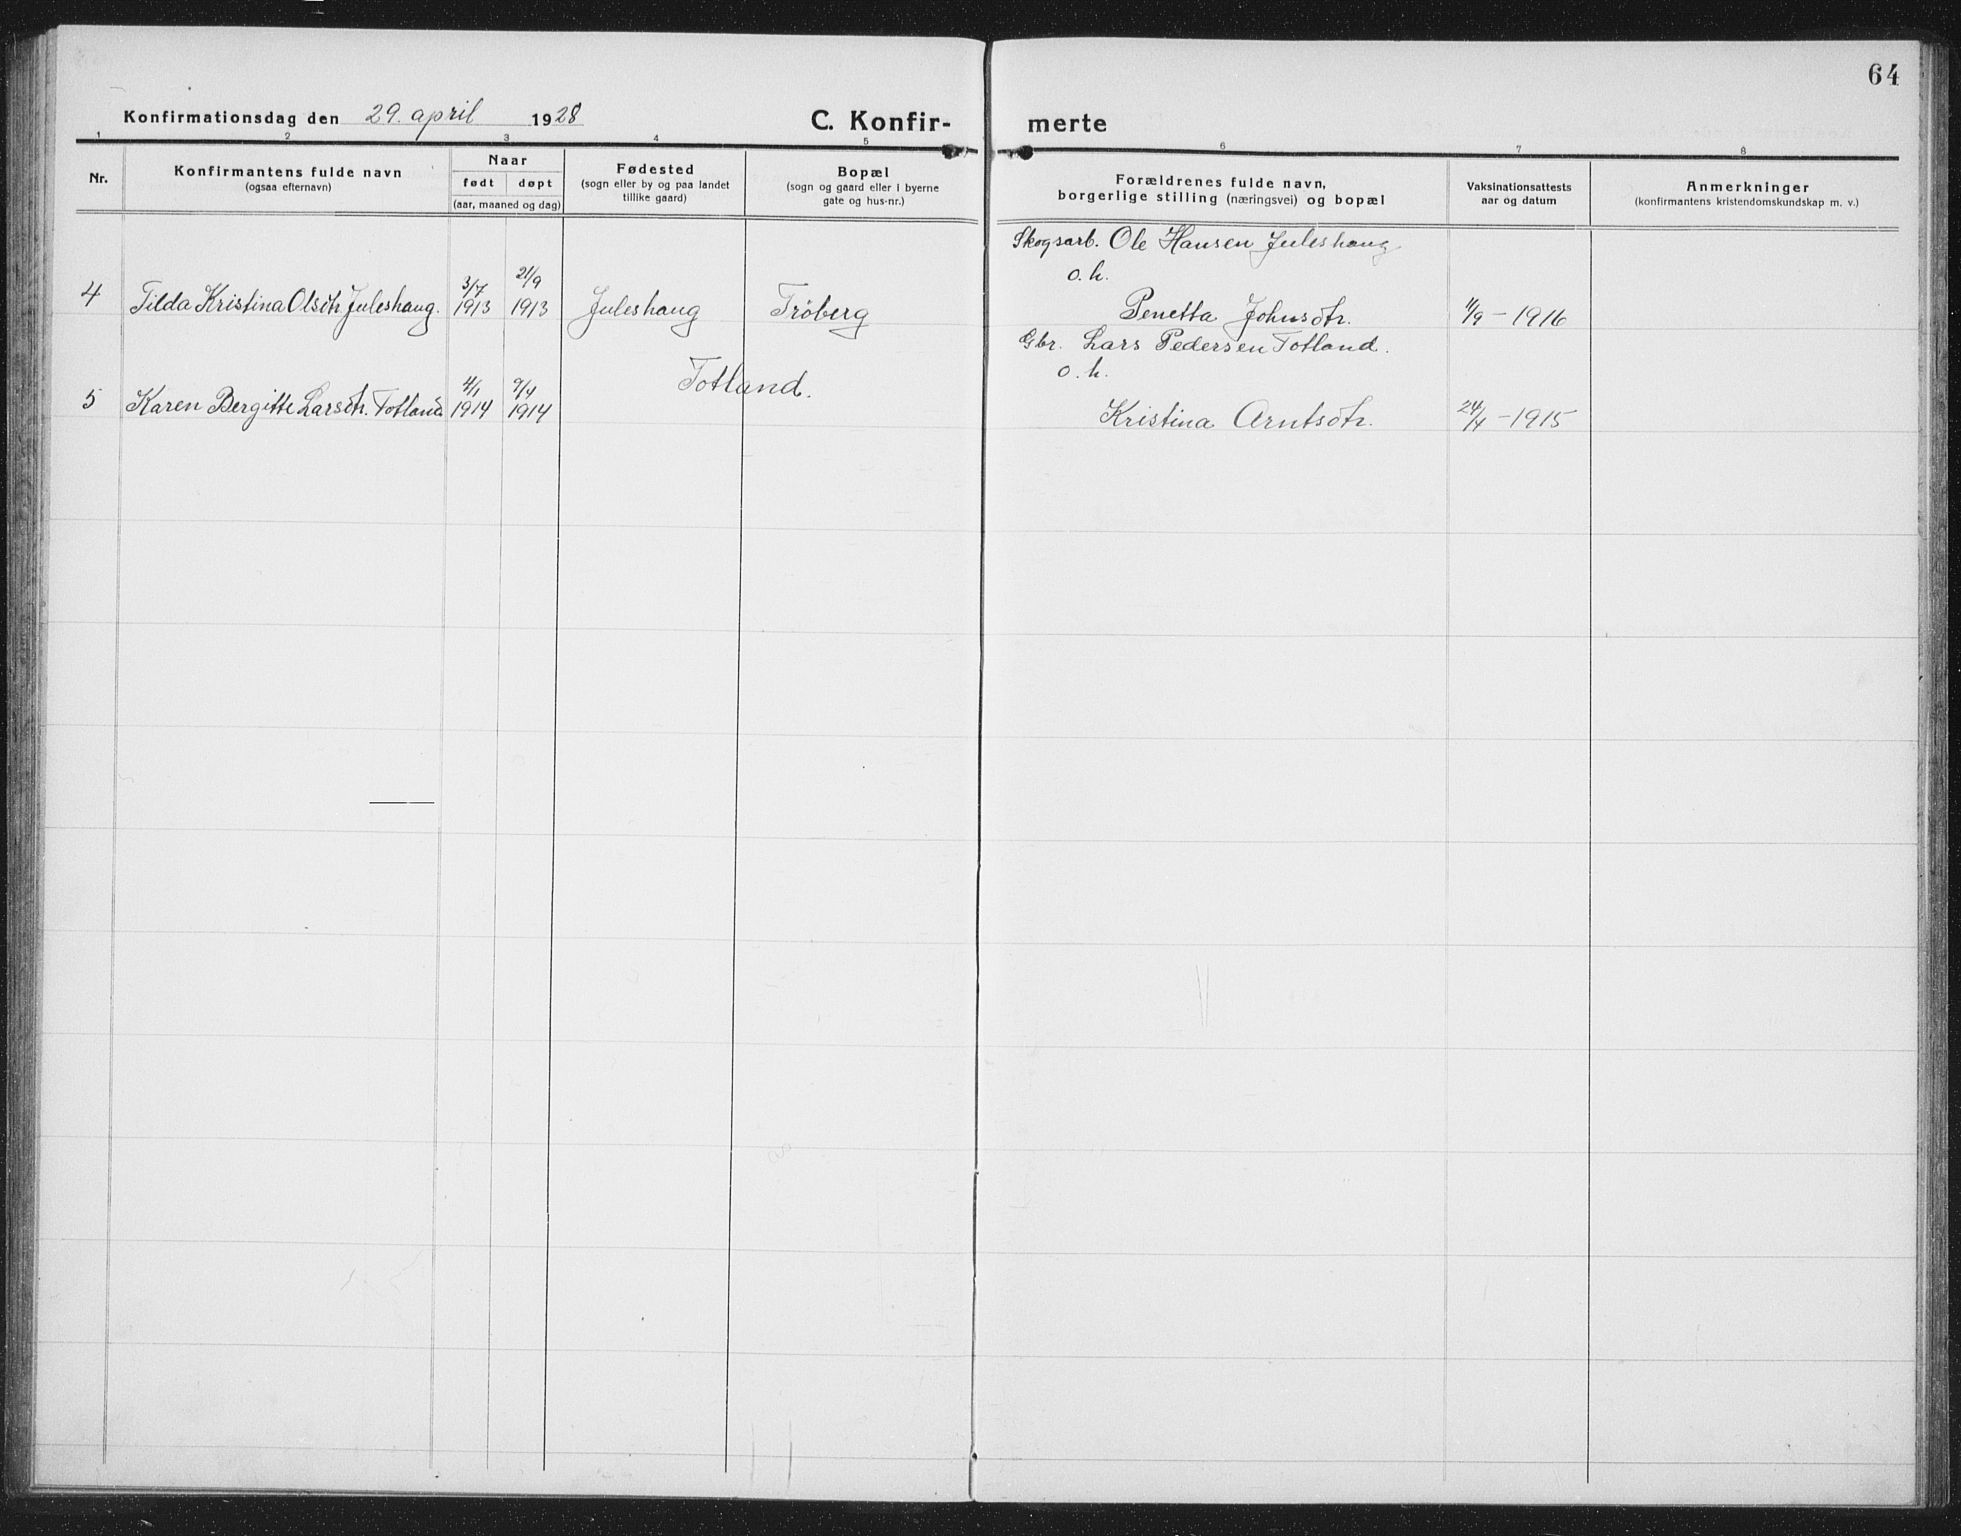 64
Konfirmationsdag den 29. april 1928
C. Konfir-
merte
1 2 3 4 5 6 7 8
Nr.
Konfirmantens fulde navn
(ogsaa efternavn)
Naar
født døpt
(aar, maaned og dag)
Fødested
(sogn eller by og paa landet
tillike gaard)
Bopæl
(sogn og gaard eller i byerne
gate og hus-nr.)
Forældrenes fulde navn,
borgerlige stilling (næringsvei) og bopæl
Vaksinationsattests
aar og datum
Anmerkninger
(konfirmantens kristendomskundskap m. v.)
Skogsarb. Ole Hansen Juleshaug
o. h.
3/7 21/9
4 Tilda Kristina Olsdtr. Juleshaug. 1913 1913 Juleshaug Trøberg Penetta Johnsdtr. 11/9 - 1916
Gbr. Lars Pedersen Totland.
o. h.
4/1 9/4 Totland.
5 Karen Bergitte Larsdtr. Totland 1914 1914 Kristina Arntsdtr. 24/4 - 1915